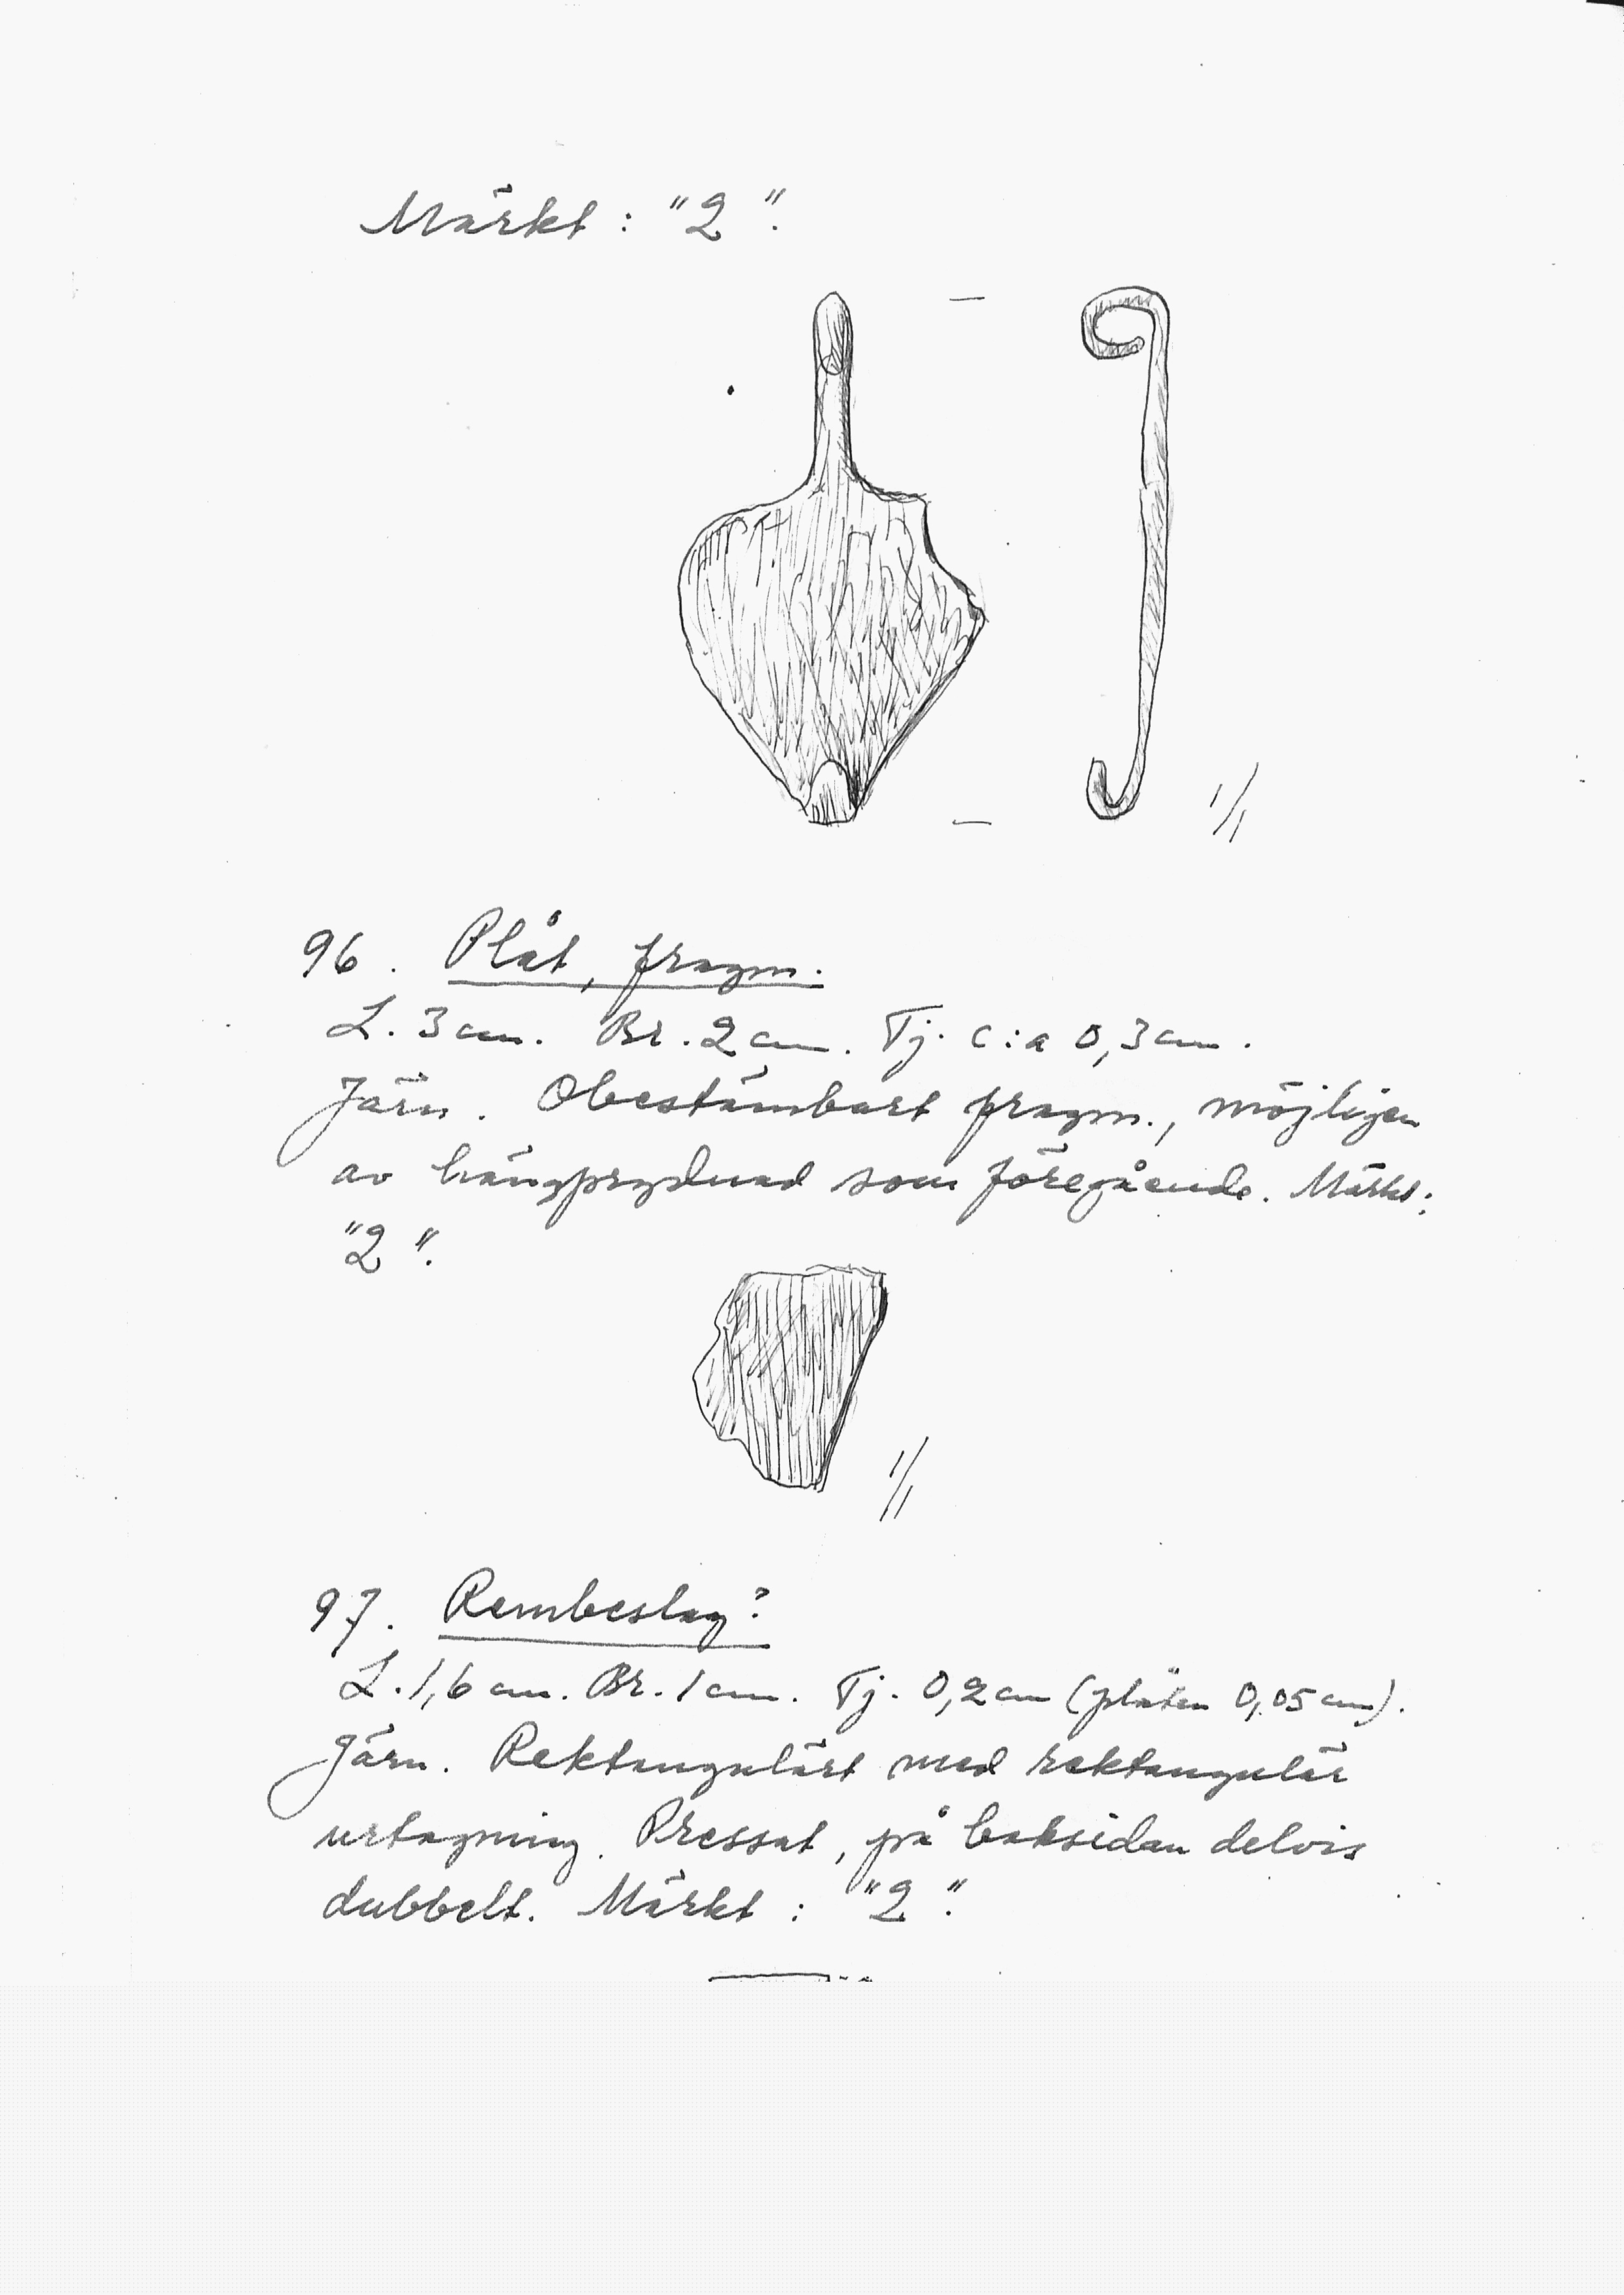 Märkt : "2".
1/1
96. Plåt, fragm.
L. 3 cm. Br. 2 cm. Tj. c:a 0,3 cm.
Järn. Obestämbart fragm., möjligen
av hängprydnad som föregående. Märkt:
"2".
1/1
97. Rembeslag?
L. 1,6 cm. Br. 1 cm. Tj. 0,2 cm (plåten 0,05 cm).
Järn. Rektangulärt med rektangulär
urtagning. Pressat, på baksidan delvis
dubbelt. Märkt : "2".